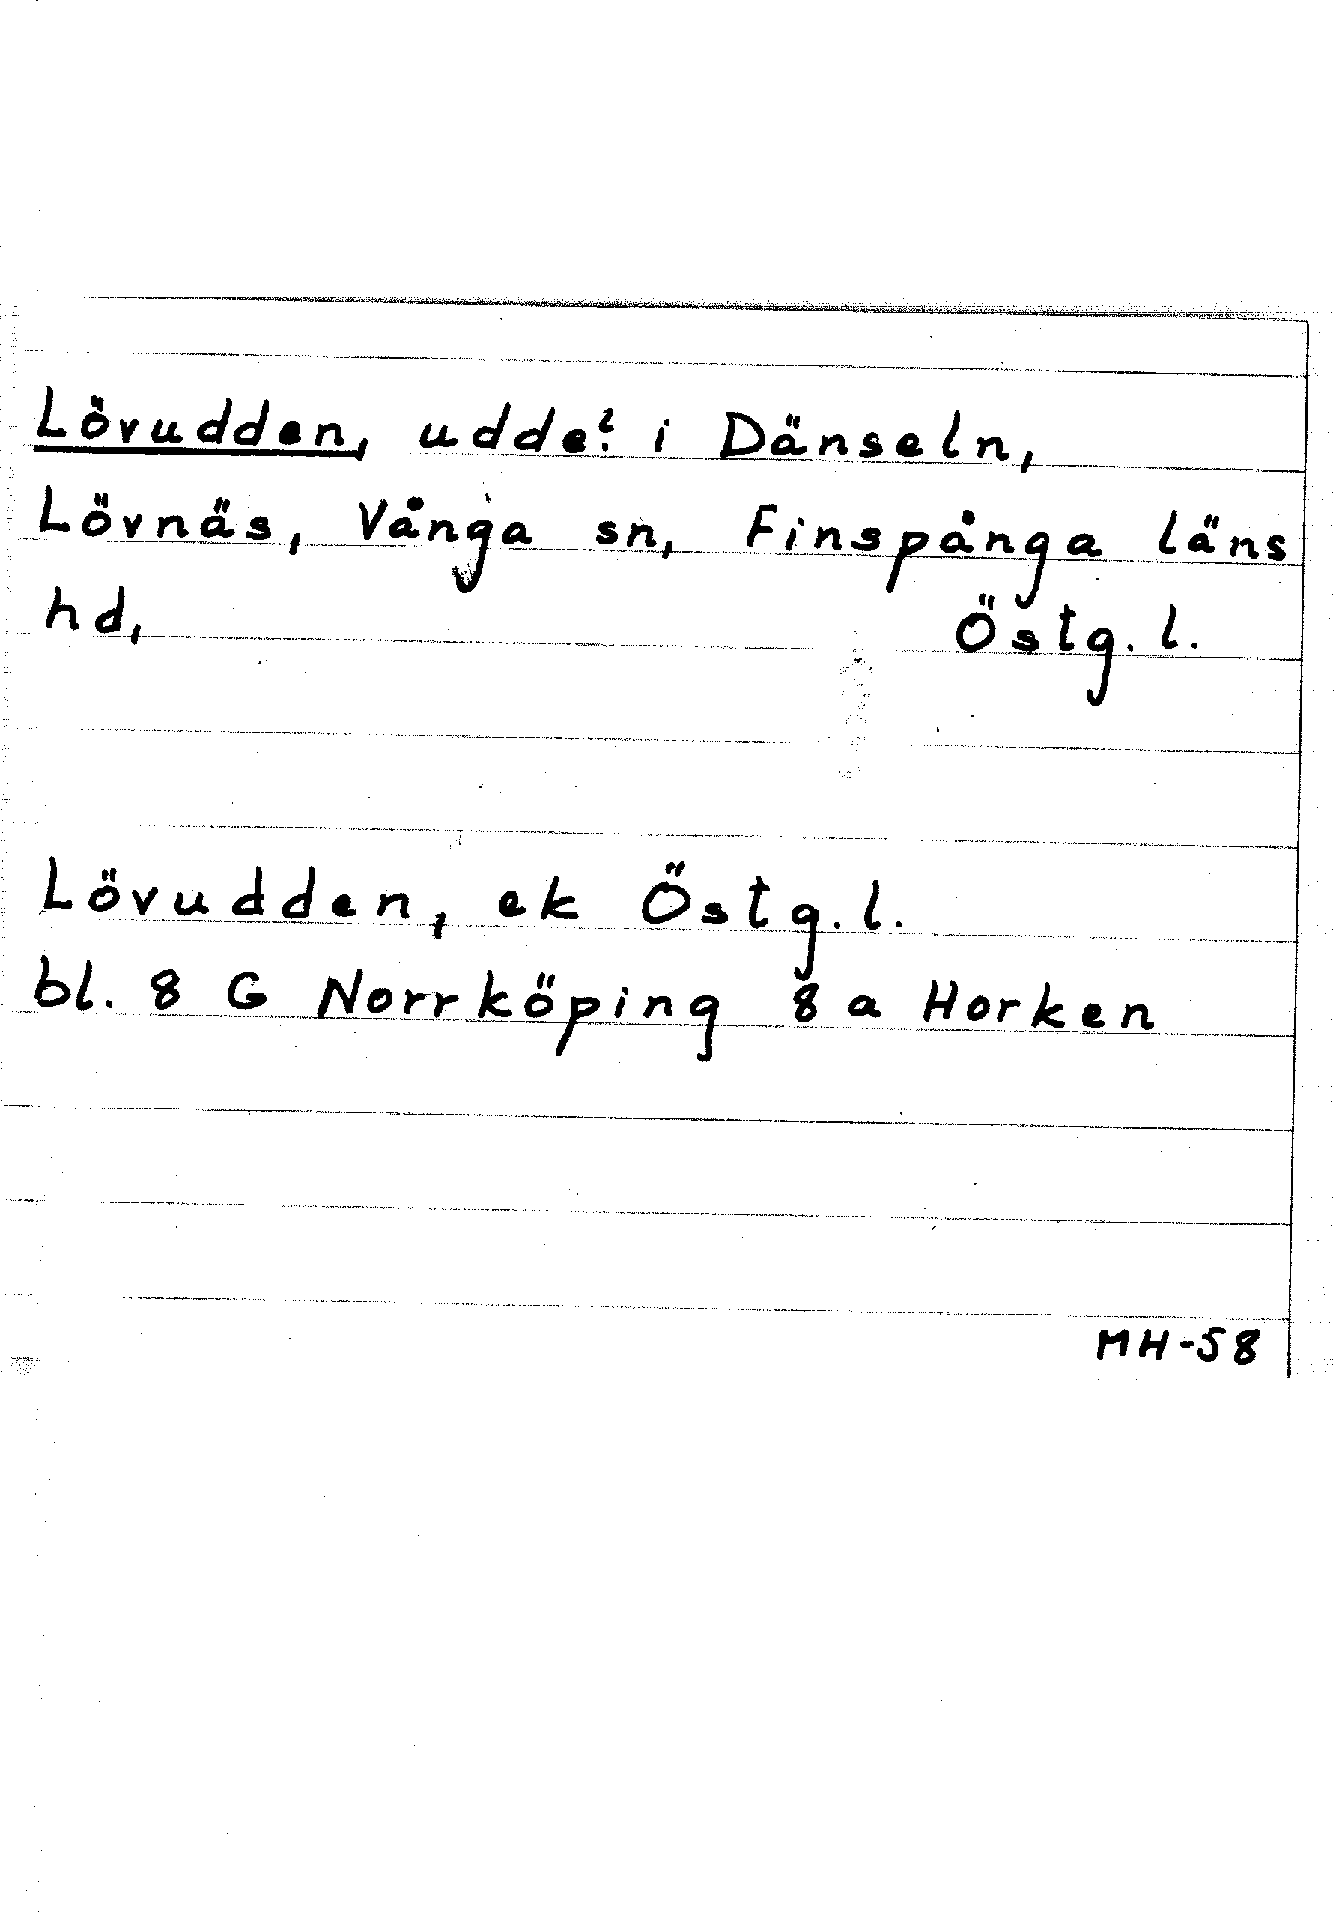 Lövudden, udde? i Dänseln,
Lövnäs, Vånga sn, Finspånga läns
hd, Östg. l.
Lövudden, ek Östg. l.
bl. 8 G Norrköping 8 a Horken
MH-58